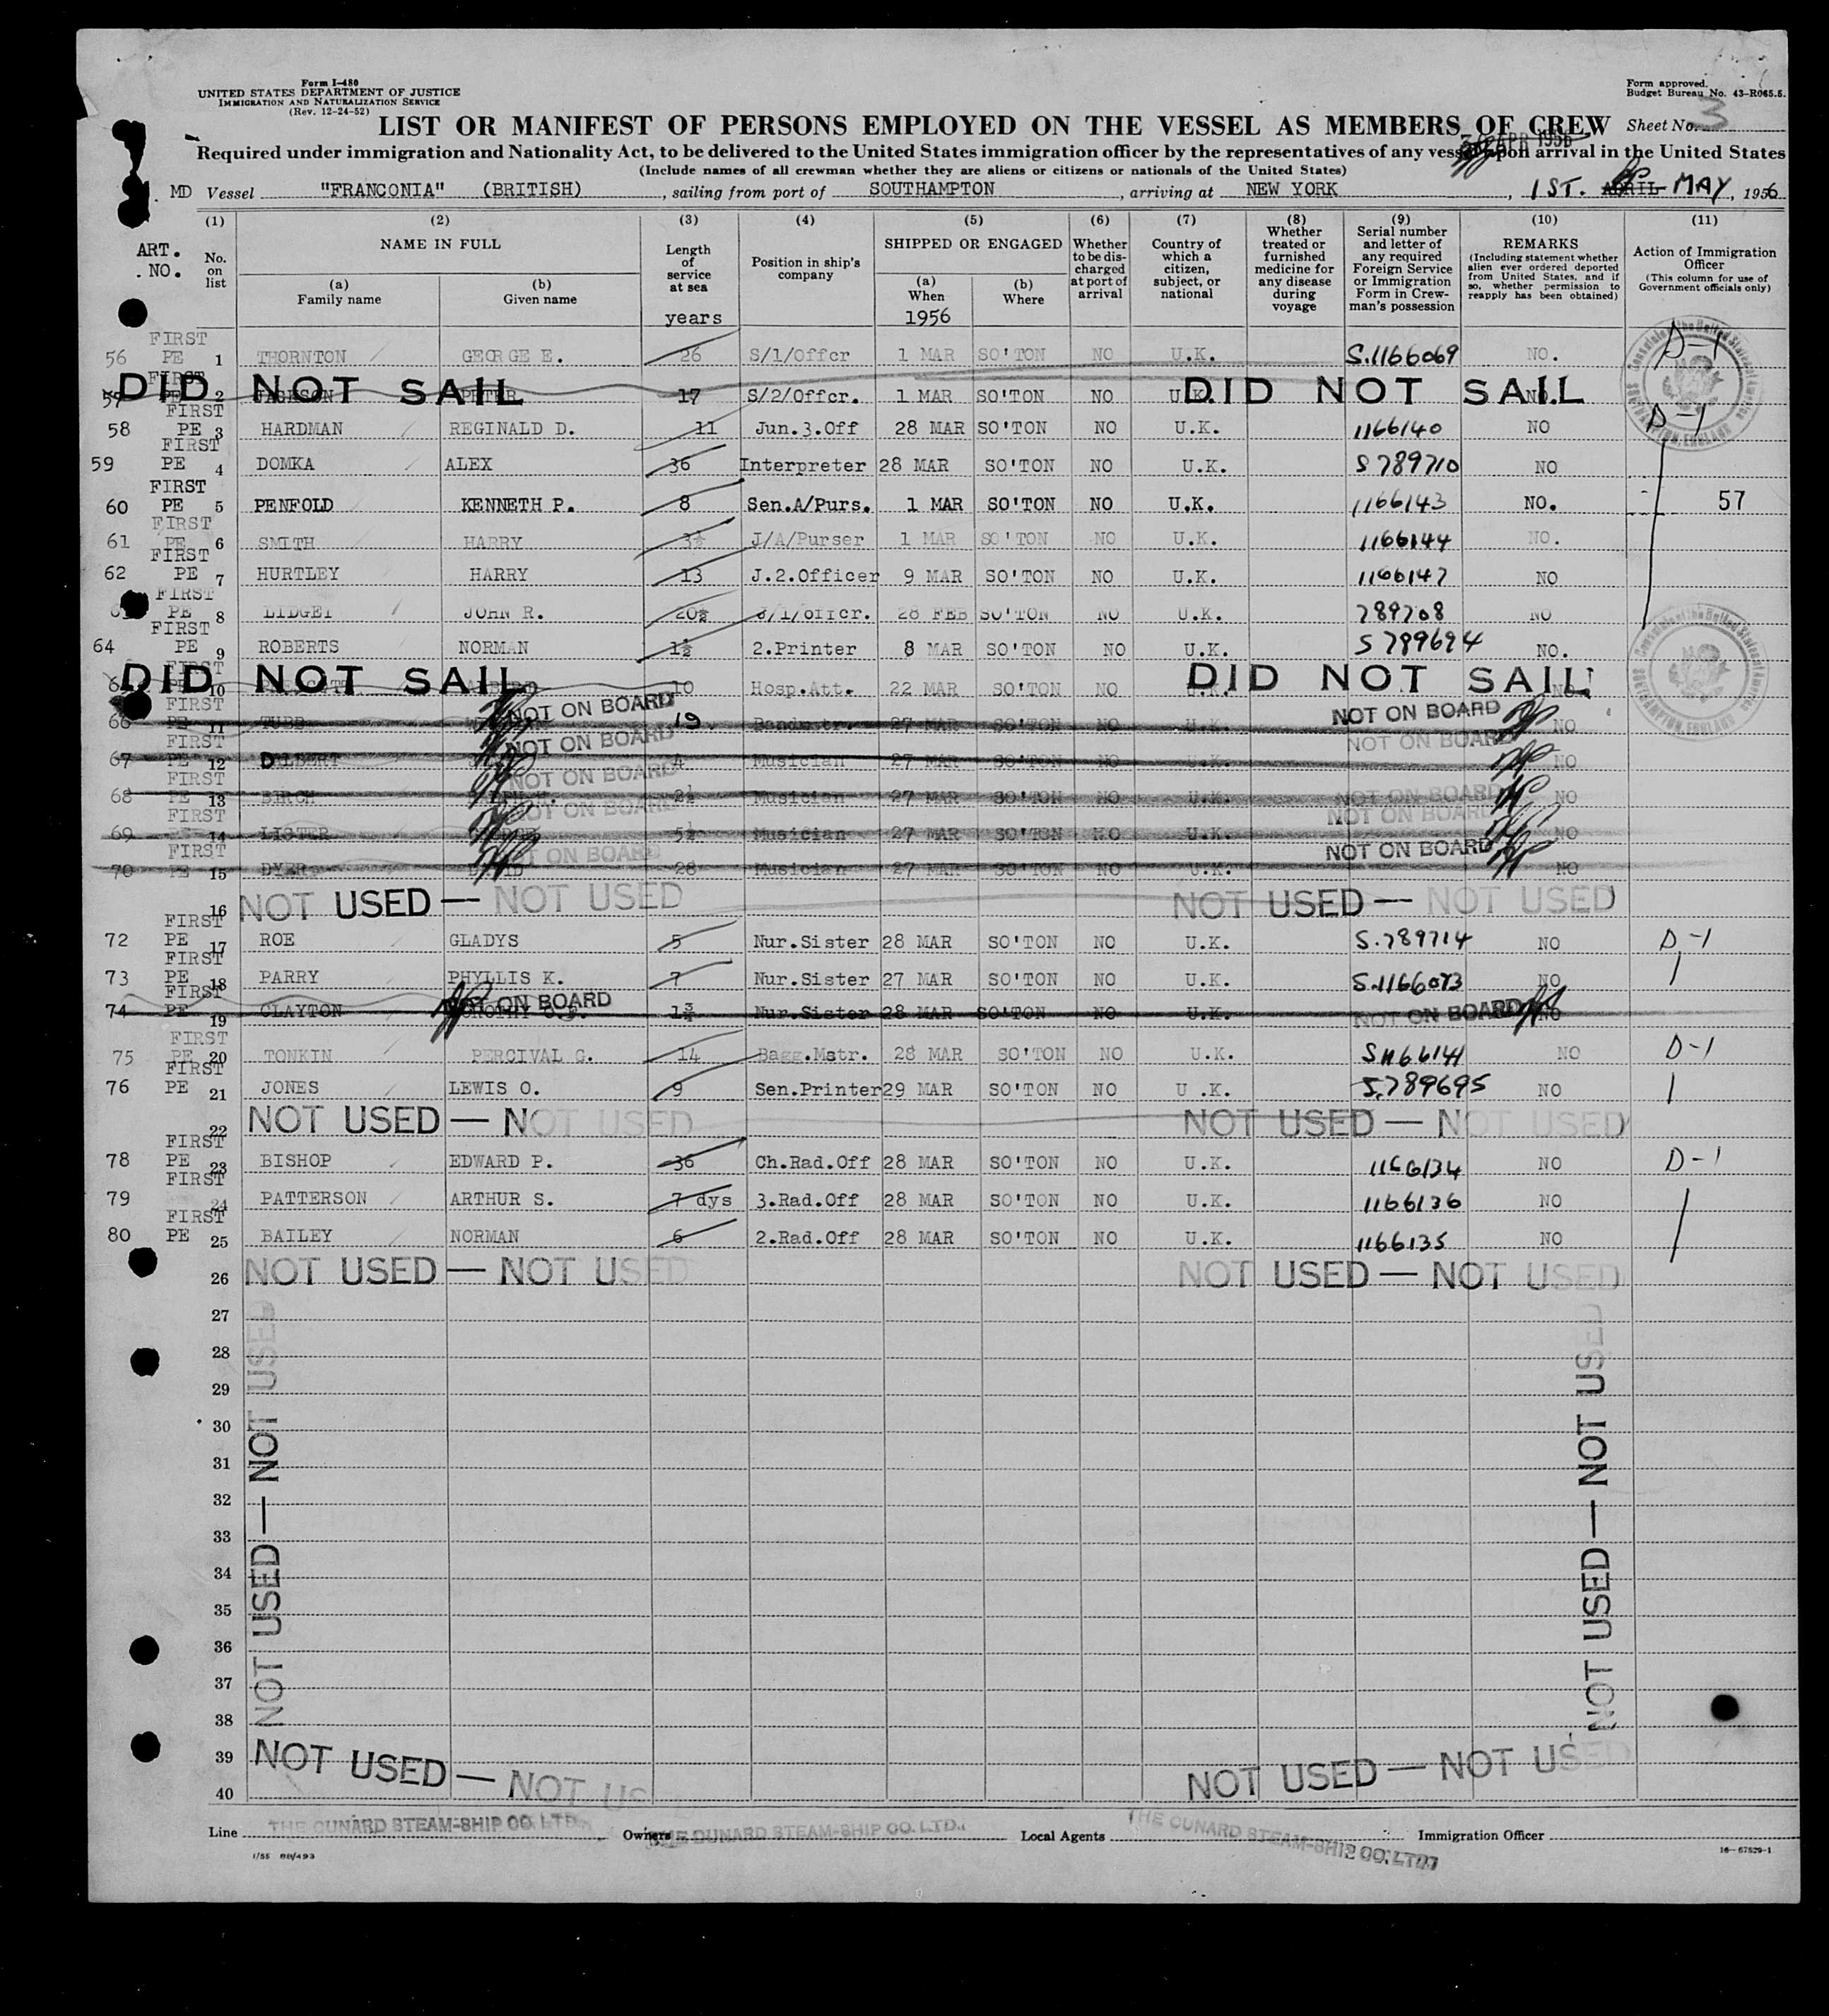 Form I-480
UNITED STATES DEPARTMENT OF JUSTICE
IMMIGRATION AND NATURALIZATION SERVICE
(Rev. 12-24-52)
Form approved.
Budget Bureau No. 43-R065.5.
LIST OR MANIFEST OF PERSONS EMPLOYED ON THE VESSEL AS MEMBERS OF CREW Sheet No. 3
APR 1956
Required under immigration and Nationality Act, to be delivered to the United States immigration officer by the representatives of any vessel upon arrival in the United States
(Include names of all crewman whether they are aliens or citizens or nationals of the United States)
MD Vessel "FRANCONIA" (BRITISH), sailing from port of SOUTHAMPTON, arriving at NEW YORK, 1ST. APRIL MAY, 1956
(1) (2) (3) (4) (5) (6) (7) (8) (9) (10) (11)
ART. NO. No. on list NAME IN FULL (a) Family name (b) Given name Length of service at sea years Position in ship's company SHIPPED OR ENGAGED (a) When 1956 (b) Where Whether to be discharged at port of arrival Country of which a citizen, subject, or national Whether treated or furnished medicine for any disease during voyage Serial number and letter of any required Foreign Service or Immigration Form in Crewman's possession REMARKS (Including statement whether alien ever ordered deported from United States, and if so, whether permission to reapply has been obtained) Action of Immigration Officer (This column for use of Government officials only)
FIRST
56 PE 1 THORNTON GEORGE E. 26 S/1/Offcr 1 MAR SO'TON NO U.K. S.1166069 NO. D-1
FIRST
DID NOT SAIL DID NOT SAIL
57 2 JACKSON PETER 17 S/2/Offcr. 1 MAR SO'TON NO U.K.
FIRST
58 PE 3 HARDMAN REGINALD D. 11 Jun.3.Off 28 MAR SO'TON NO U.K. 1166140 NO D-1
FIRST
59 PE 4 DOMKA ALEX 36 Interpreter 28 MAR SO'TON NO U.K. S 789710 NO
FIRST
60 PE 5 PENFOLD KENNETH P. 8 Sen.A/Purs. 1 MAR SO'TON NO U.K. 1166143 NO. 57
FIRST
61 PE 6 SMITH HARRY 3½ J/A/Purser 1 MAR SO'TON NO U.K. 1166144 NO.
FIRST
62 PE 7 HURTLEY HARRY 13 J.2.Officer 9 MAR SO'TON NO U.K. 1166147 NO
FIRST
PE 8 LIDGET JOHN R. 20½ J/1/offcr. 28 FEB SO'TON NO U.K. 789708 NO
FIRST
64 PE 9 ROBERTS NORMAN 1½ 2.Printer 8 MAR SO'TON NO U.K. S 789694 NO.
FIRST
DID NOT SAIL DID NOT SAIL
PE 10 10 Hosp.Att. 22 MAR SO'TON NO U.K. NO
FIRST
NOT ON BOARD NOT ON BOARD
66 PE 11 TUBB 19 Bandmstr. 27 MAR SO'TON NO U.K. NO
FIRST
NOT ON BOARD NOT ON BOARD
67 PE 12 DALBERT 4 Musician 27 MAR SO'TON NO U.K. NO
FIRST
NOT ON BOARD NOT ON BOARD
68 PE 13 BIRCH 2½ Musician 27 MAR SO'TON NO U.K. NO
FIRST
NOT ON BOARD NOT ON BOARD
69 PE 14 LISTER 5½ Musician 27 MAR SO'TON NO U.K. NO
FIRST
NOT ON BOARD NOT ON BOARD
70 PE 15 DYER DAVID 28 Musician 27 MAR SO'TON NO U.K. NO
16 NOT USED — NOT USED NOT USED — NOT USED
FIRST
72 PE 17 ROE GLADYS 5 Nur.Sister 28 MAR SO'TON NO U.K. S.789714 NO D-1
FIRST
73 PE 18 PARRY PHYLLIS K. 7 Nur.Sister 27 MAR SO'TON NO U.K. S.1166073 NO
FIRST
NOT ON BOARD NOT ON BOARD
74 PE 19 CLAYTON DOROTHY 1¾ Nur.Sister 28 MAR SO'TON NO U.K. NO
FIRST
75 PE 20 TONKIN PERCIVAL G. 14 Bagg.Mstr. 28 MAR SO'TON NO U.K. S1166141 NO D-1
FIRST
76 PE 21 JONES LEWIS O. 9 Sen.Printer 29 MAR SO'TON NO U.K. S.789695 NO
22 NOT USED — NOT USED NOT USED — NOT USED
FIRST
78 PE 23 BISHOP EDWARD P. 36 Ch.Rad.Off 28 MAR SO'TON NO U.K. 1166134 NO D-1
FIRST
79 24 PATTERSON ARTHUR S. 7 dys 3.Rad.Off 28 MAR SO'TON NO U.K. 1166136 NO
FIRST
80 PE 25 BAILEY NORMAN 6 2.Rad.Off 28 MAR SO'TON NO U.K. 1166135 NO
26 NOT USED — NOT USED NOT USED — NOT USED
27
28
29
30
31
32
33
34
35
36
37
38
NOT USED — NOT USED NOT USED — NOT USED
39 NOT USED — NOT US NOT USED — NOT USED
40
Line THE CUNARD STEAM-SHIP CO. LTD. Owners THE CUNARD STEAM-SHIP CO. LTD. Local Agents THE CUNARD STEAM-SHIP CO. LTD. Immigration Officer
1/55 BB/493
16—67529-1